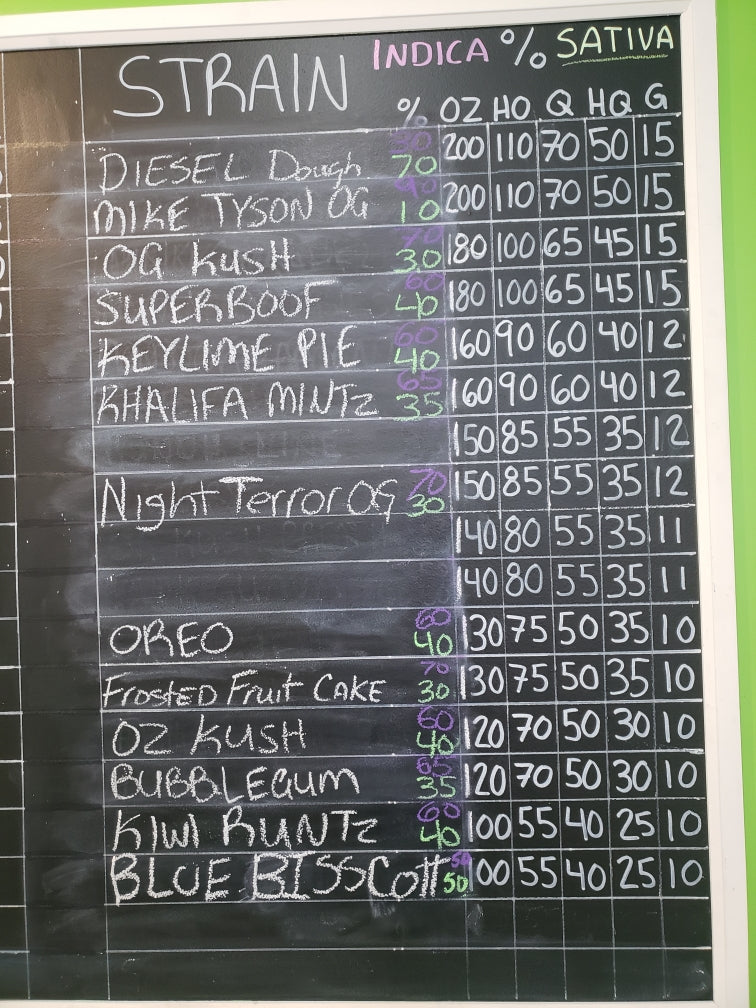 STRAIN INDICA % SATIVA
% OZ HO Q HQ G
DIESEL Dough 30 70 200 110 70 50 15
MIKE TYSON OG 90 10 200 110 70 50 15
OG KUSH 70 30 180 100 65 45 15
SUPERBOOF 60 40 180 100 65 45 15
KEYLIME PIE 60 40 160 90 60 40 12
KHALIFA MINTZ 65 35 160 90 60 40 12
150 85 55 35 12
Night Terror OG 70 30 150 85 55 35 12
140 80 55 35 11
140 80 55 35 11
OREO 60 40 130 75 50 35 10
FROSTED FRUIT CAKE 70 30 130 75 50 35 10
OZ KUSH 60 40 120 70 50 30 10
BUBBLEGUM 65 35 120 70 50 30 10
KIWI RUNTZ 60 40 100 55 40 25 10
BLUE BISSCOtt 50 50 100 55 40 25 10